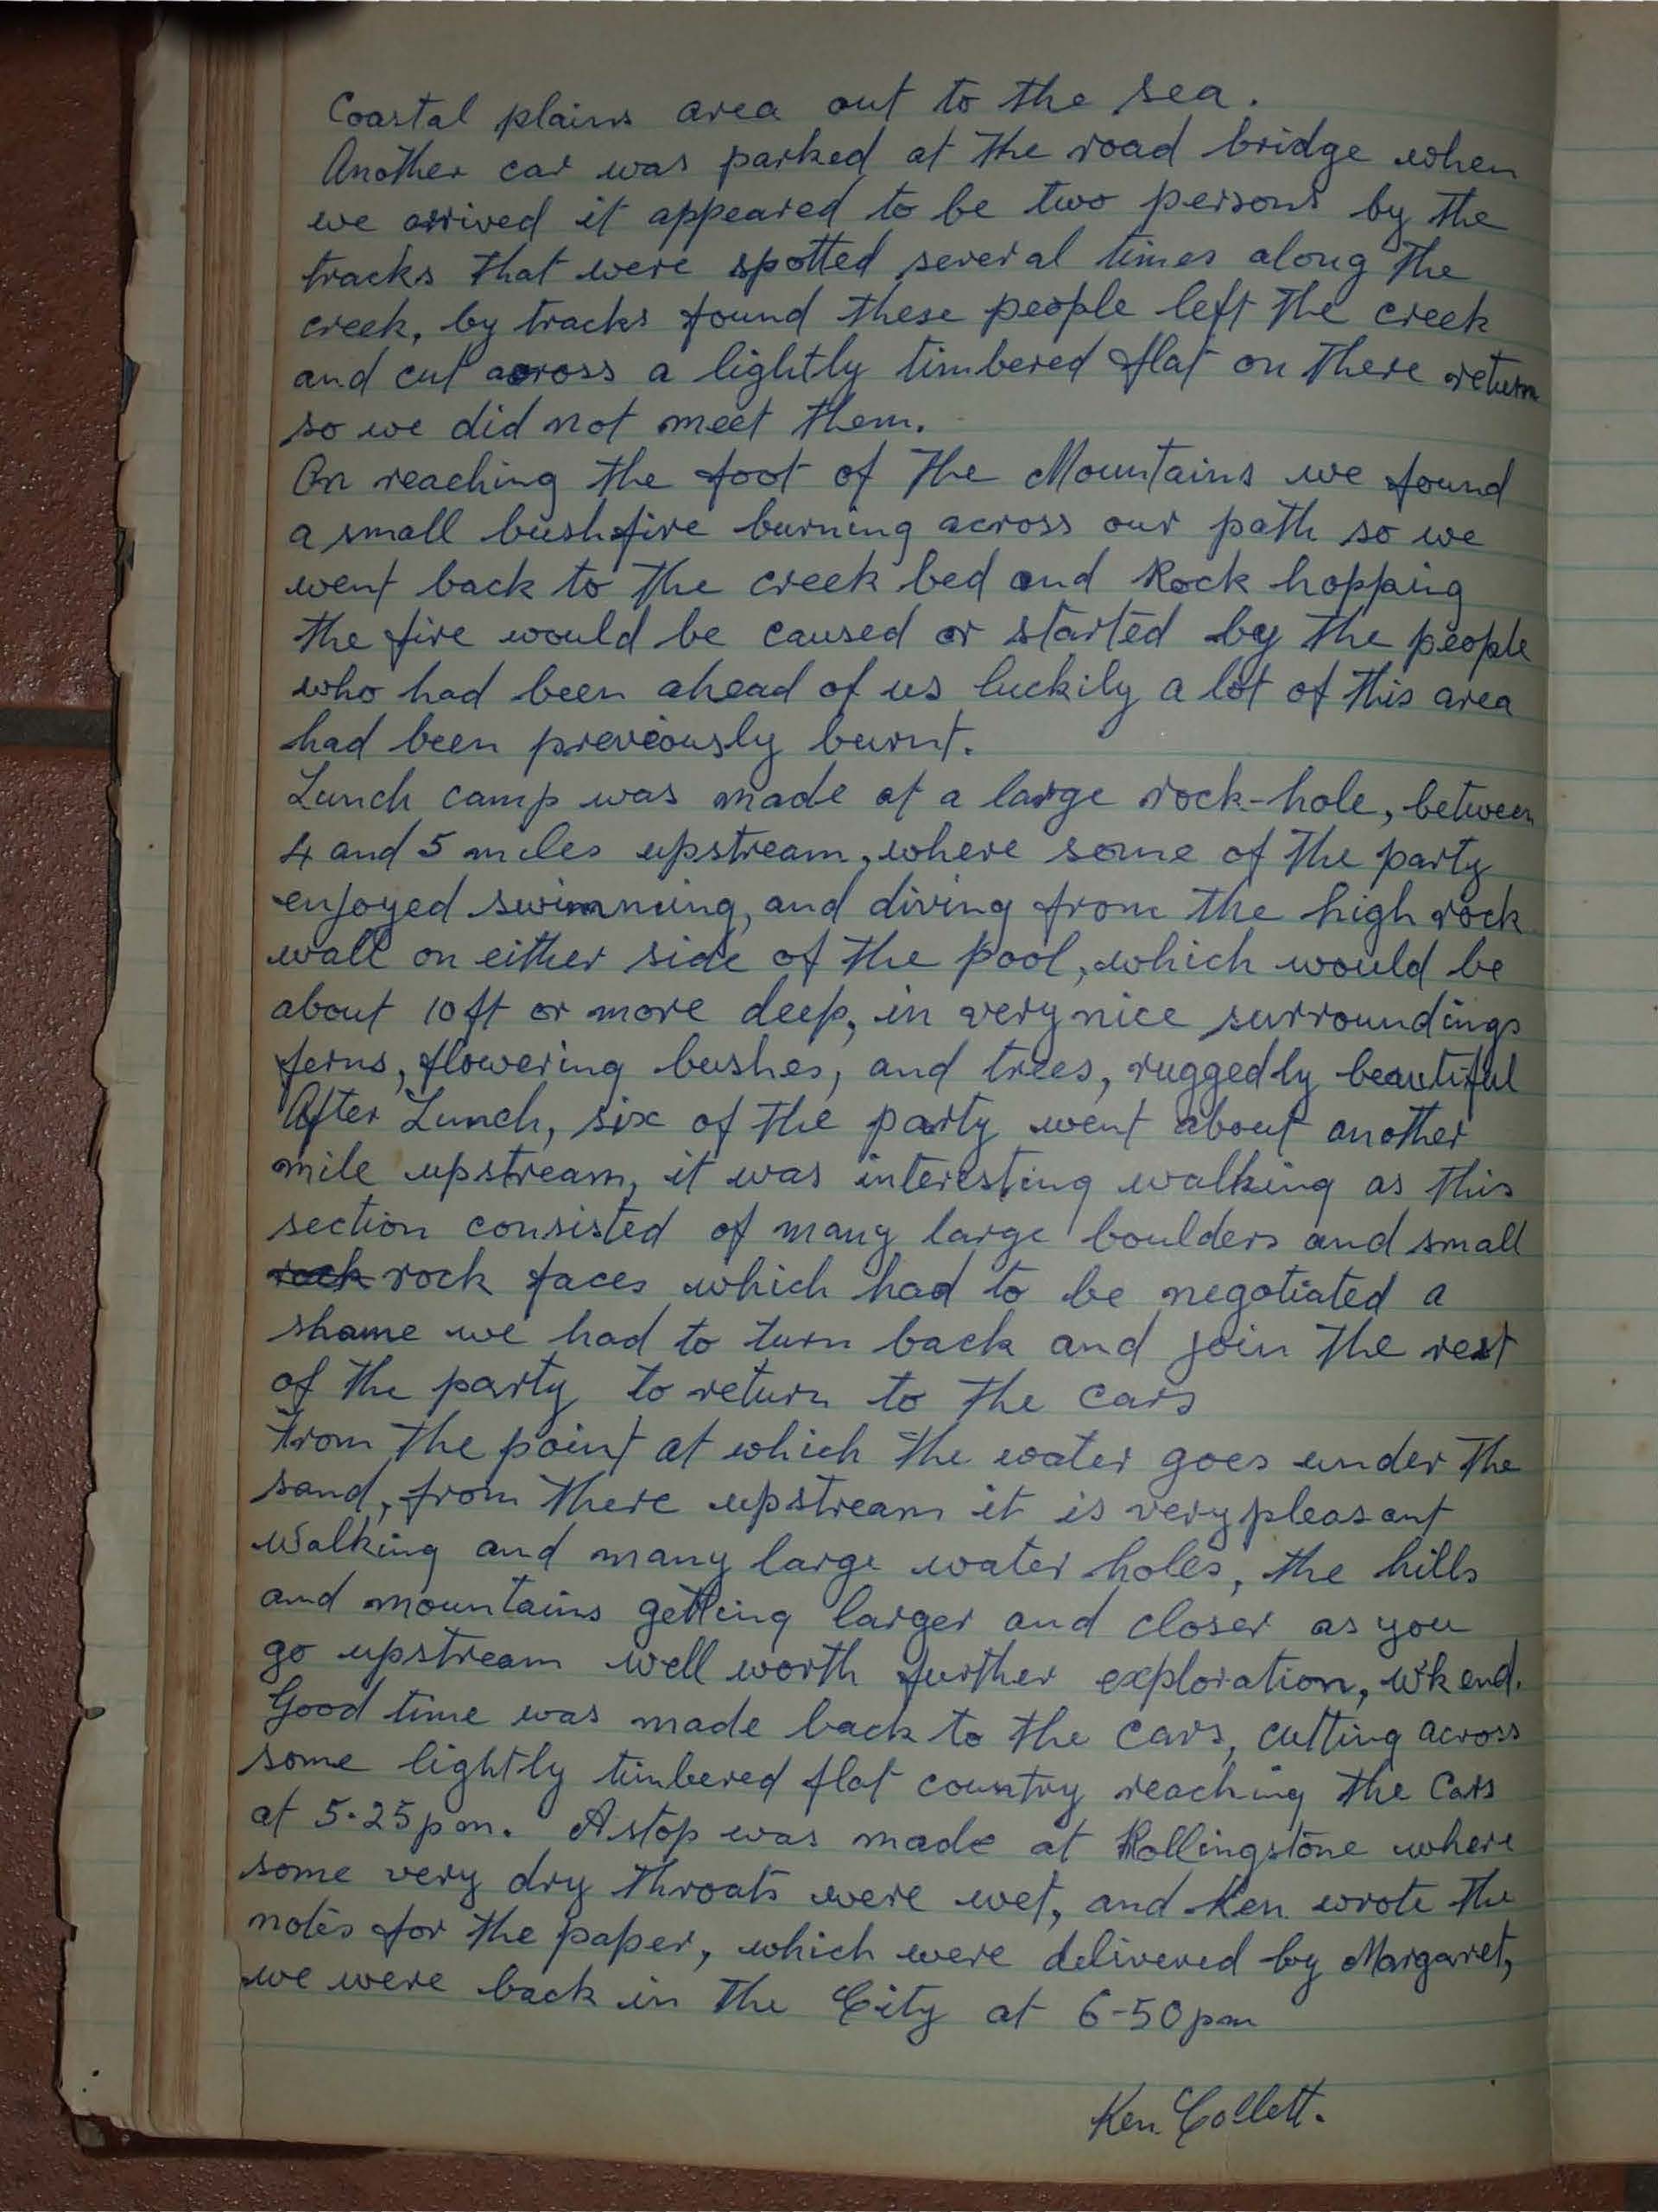 Coastal plains area out to the sea.
Another car was parked at the road bridge when
we arrived it appeared to be two persons by the
tracks that were spotted several times along the
creek, by tracks found these people left the creek
and cut across a lightly timbered flat on there return
so we did not meet them.
On reaching the foot of the Mountains we found
a small bushfire burning across our path so we
went back to the creek bed and Rock hopping
the fire would be caused or started by the people
who had been ahead of us luckily a lot of this area
had been previously burnt.
Lunch camp was made at a large rock-hole, between
4 and 5 miles upstream, where some of the party
enjoyed swimming, and diving from the high rock
wall on either side of the pool, which would be
about 10ft or more deep, in very nice surroundings
ferns, flowering bushes, and trees, ruggedly beautiful
After Lunch, six of the party went about another
mile upstream, it was interesting walking as this
section consisted of many large boulders and small
rock rock faces which had to be negotiated a
shame we had to turn back and join the rest
of the party to return to the cars
From the point at which the water goes under the
sand, from there upstream it is very pleasant
walking and many large water holes, the hills
and mountains getting larger and closer as you
go upstream well worth further exploration, w'k end.
Good time was made back to the cars, cutting across
some lightly timbered flat country reaching the Cars
at 5.25pm. A stop was made at Rollingstone where
some very dry throats were wet, and Ken wrote the
notes for the paper, which were delivered by Margaret,
we were back in the City at 6-50pm
Ken Collett.